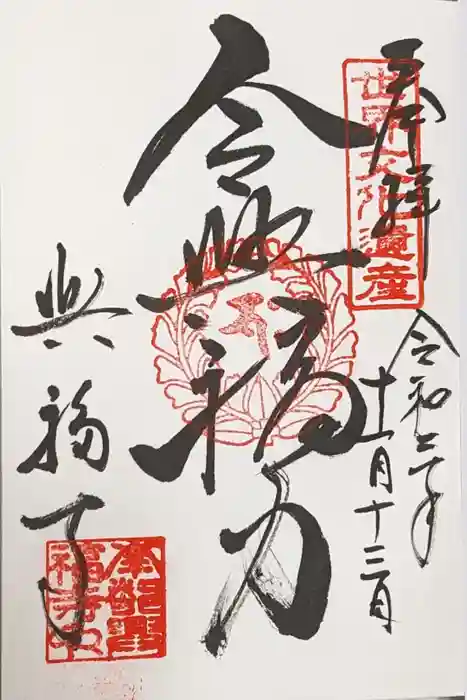 奉拝
世界文化遺産
令和二年
十一月十三日
令興福力
興福寺